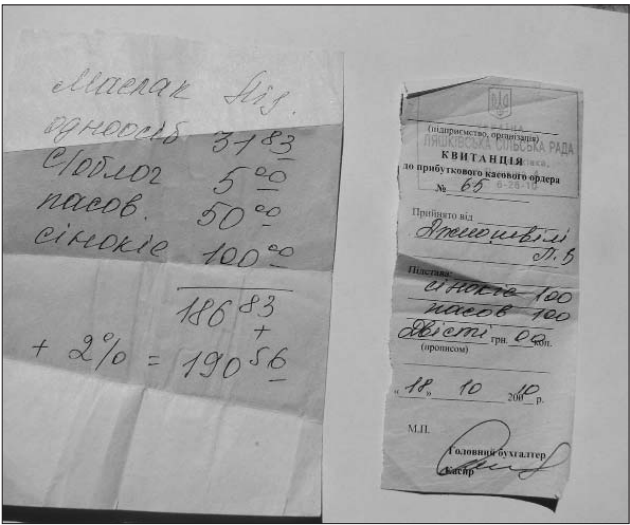 Маслак
одноосіб 31 83
с/облог 5 00
пасов. 50 00
сінокіс 100 00
186 83
+
+ 2% = 190 56
(підприємство, організація)
ЛЯШКІВСЬКА СІЛЬСЬКА РАДА
КВИТАНЦІЯ
до прибуткового касового ордера
№ 65
Прийнято від
Джеошвілі
Л. В
Підстава:
сінокіс 100
пасов 100
Двісті грн. 00 коп.
(прописом)
"18" 10 2010 р.
М.П.
Головний бухгалтер
Касир